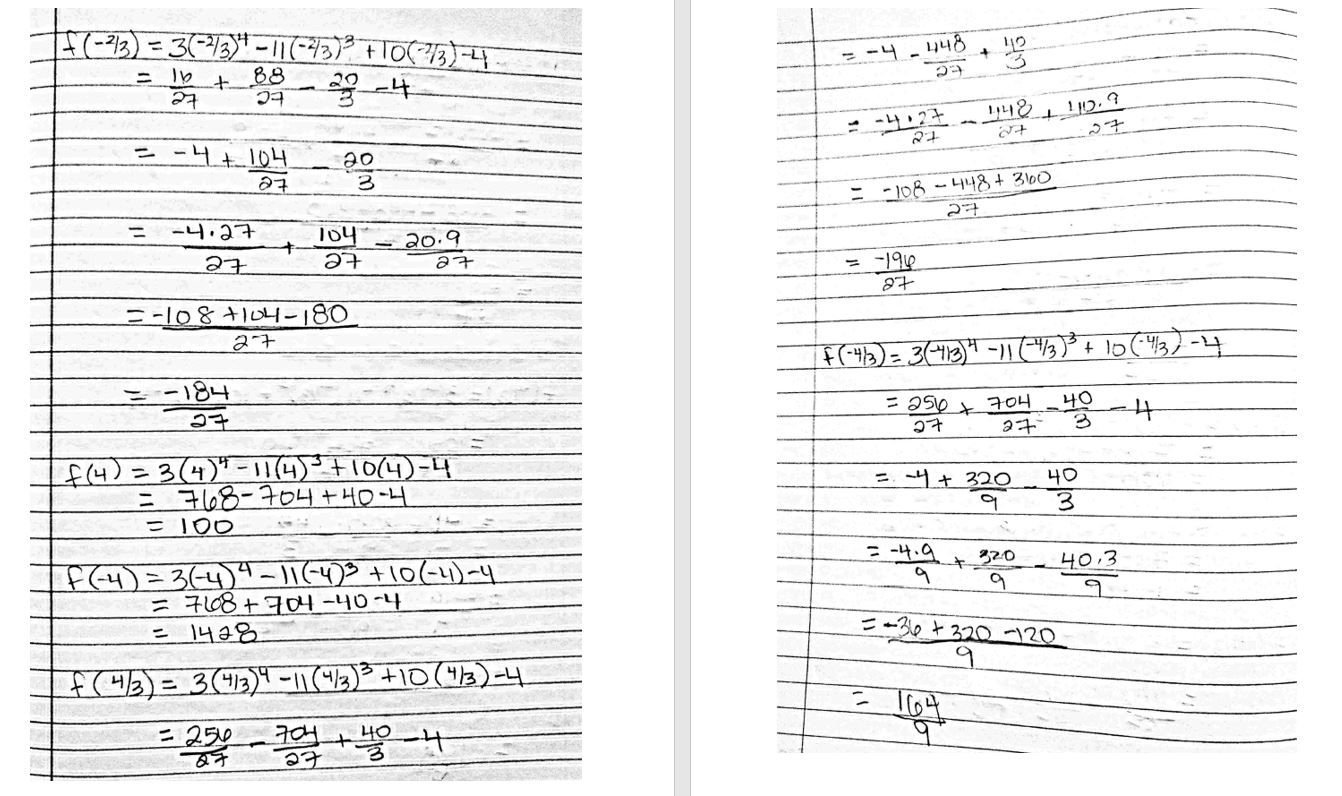 f(-2/3) = 3(-2/3)^4 - 11(-2/3)^3 + 10(-2/3) - 4
= 16/27 + 88/27 - 20/3 - 4
= -4 + 104/27 - 20/3
= -4·27/27 + 104/27 - 20·9/27
= -108 + 104 - 180/27
= -184/27
f(4) = 3(4)^4 - 11(4)^3 + 10(4) - 4
= 768 - 704 + 40 - 4
= 100
f(-4) = 3(-4)^4 - 11(-4)^3 + 10(-4) - 4
= 768 + 704 - 40 - 4
= 1428
f(4/3) = 3(4/3)^4 - 11(4/3)^3 + 10(4/3) - 4
= 256/27 - 704/27 + 40/3 - 4
= -4 - 448/27 + 40/3
= -4·27/27 - 448/27 + 40·9/27
= -108 - 448 + 360/27
= -196/27
f(-4/3) = 3(-4/3)^4 - 11(-4/3)^3 + 10(-4/3) - 4
= 256/27 + 704/27 - 40/3 - 4
= -4 + 320/9 - 40/3
= -4·9/9 + 320/9 - 40·3/9
= -36 + 320 - 120/9
= 164/9